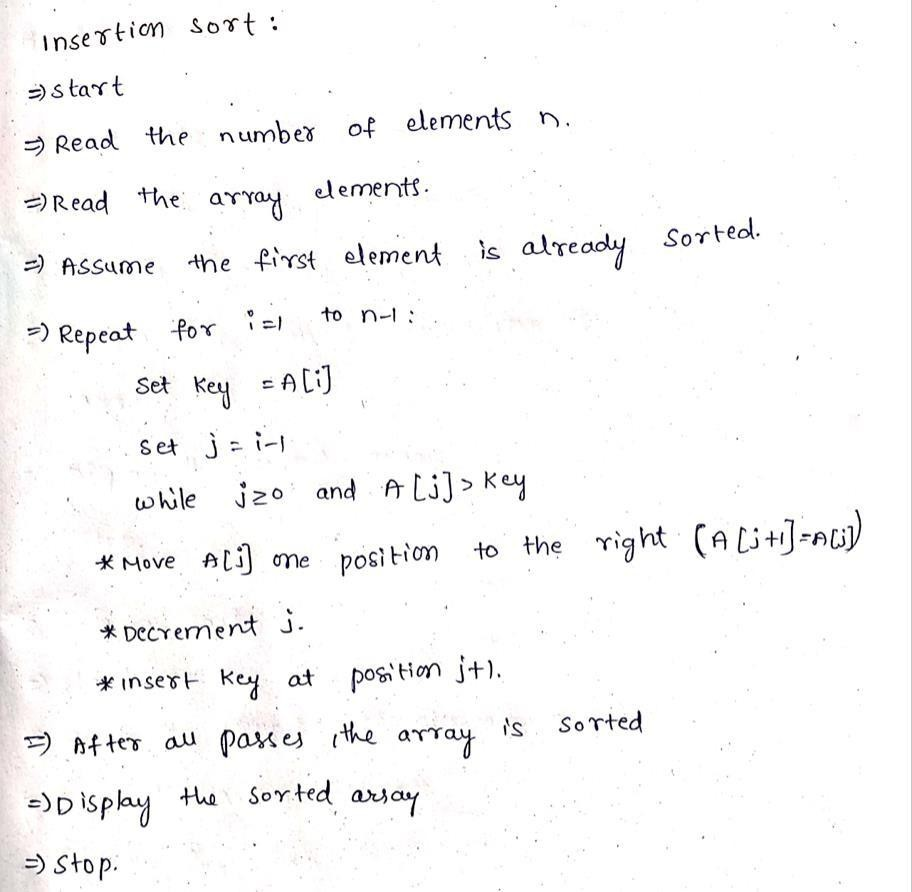 Insertion sort :
⇒ start
⇒ Read the number of elements n.
⇒ Read the array elements.
⇒ Assume the first element is already sorted.
⇒ Repeat for i=1 to n-1 :
Set key = A[i]
set j = i-1
while j≥0 and A[j]>key
* Move A[j] one position to the right (A[j+1]=A[j])
* Decrement j.
* insert key at position j+1.
⇒ After all passes, the array is sorted
⇒ Display the sorted array
⇒ Stop.